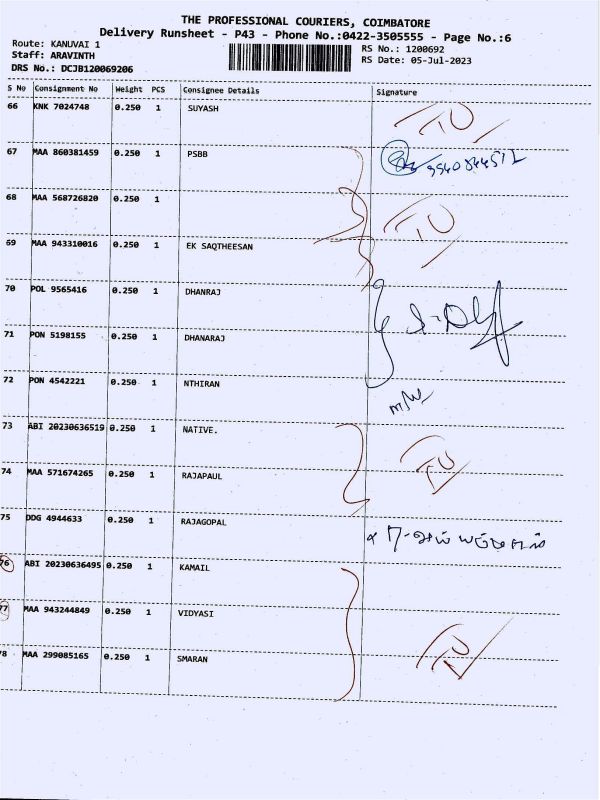 THE PROFESSIONAL COURIERS, COIMBATORE
Delivery Runsheet - P43 - Phone No.:0422-3505555 - Page No.:6
Route: KANUVAI 1
RS No.: 1200692
Staff: ARAVINTH
RS Date: 05-Jul-2023
DRS No.: DCJB120069206
S No Consignment No Weight PCS Consignee Details Signature
66 KNK 7024748 0.250 1 SUYASH
67 MAA 860381459 0.250 1 PSBB
68 MAA 568726820 0.250 1
69 MAA 943310016 0.250 1 EK SAQTHEESAN
70 POL 9565416 0.250 1 DHANRAJ
71 PON 5198155 0.250 1 DHANARAJ
72 PON 4542221 0.250 1 NTHIRAN
73 ABI 20230636519 0.250 1 NATIVE.
74 MAA 571674265 0.250 1 RAJAPAUL
75 DDG 4944633 0.250 1 RAJAGOPAL
76 ABI 20230636495 0.250 1 KAMAIL
77 MAA 943244849 0.250 1 VIDYASI
78 MAA 299085165 0.250 1 SMARAN